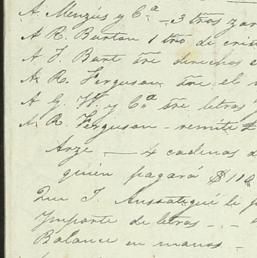 A. Menzús y Cª - 3 tros zar
A R. Barton 1 tro de cris
A J. Bart tre derechos e
A R. Ferguson, tre. el
A G. H. y Cª tre letras
A R. Ferguson - remite
Arze - 4 cadenas d
quien pagará $ 110
Que J. le p
Importe de letras - - -
Balance en manos -